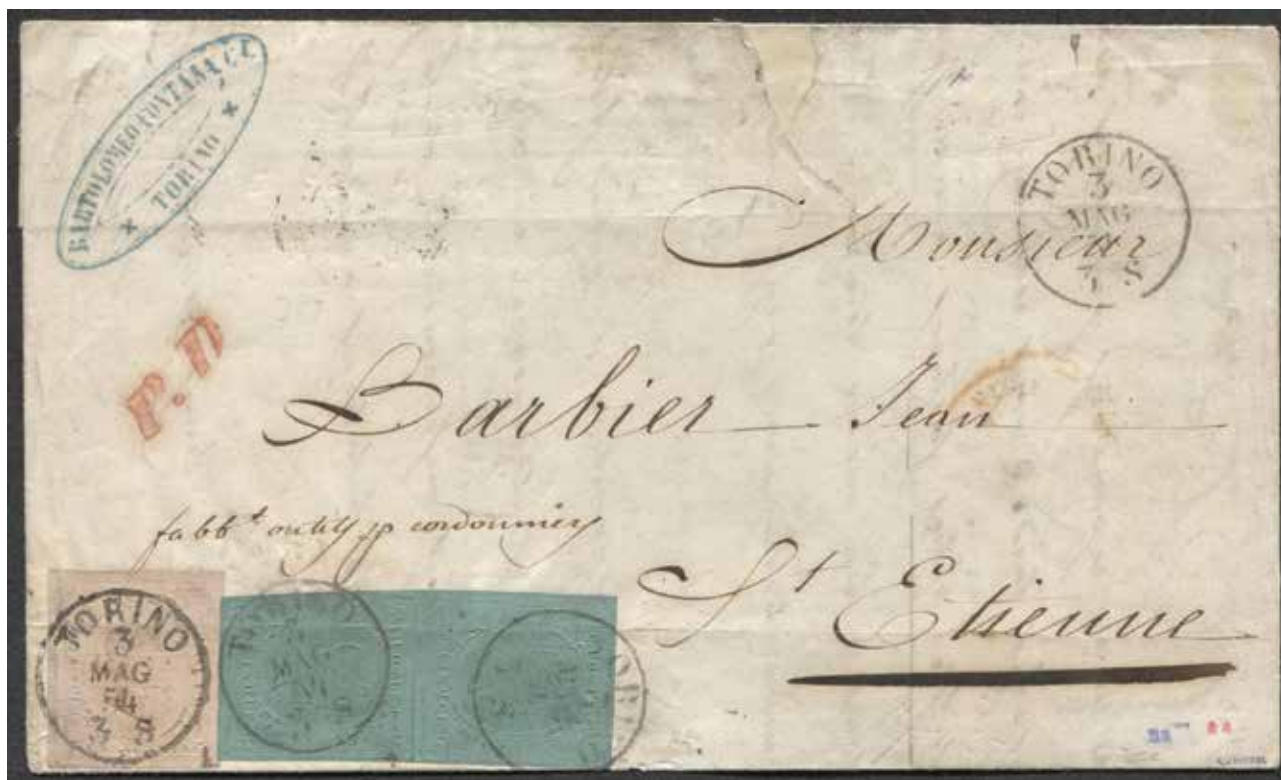 BARTOLOMEO FONTANA
TORINO
TORINO
3
MAG
3 S
Monsieur
P. D
Barbier Jean
fabbt outils p cordonniers
St Etienne
TORINO
3
MAG
54
3 S
TORINO
MAG